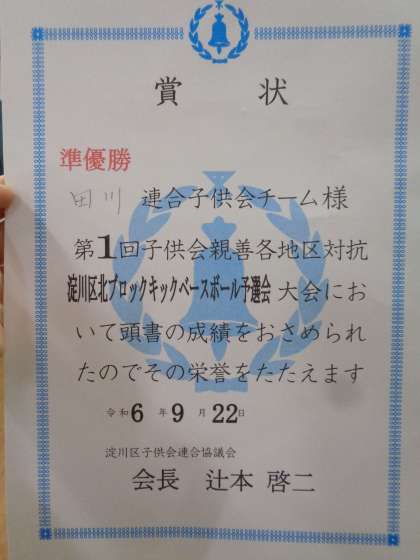 賞状
準優勝
田川 連合子供会チーム様
第1回子供会親善各地区対抗
淀川区北ブロックキックベースボール予選会 大会にお
いて頭書の成績をおさめられ
たのでその栄誉をたたえます
令和6年9月22日
淀川区子供会連合協議会
会長 辻本 啓二